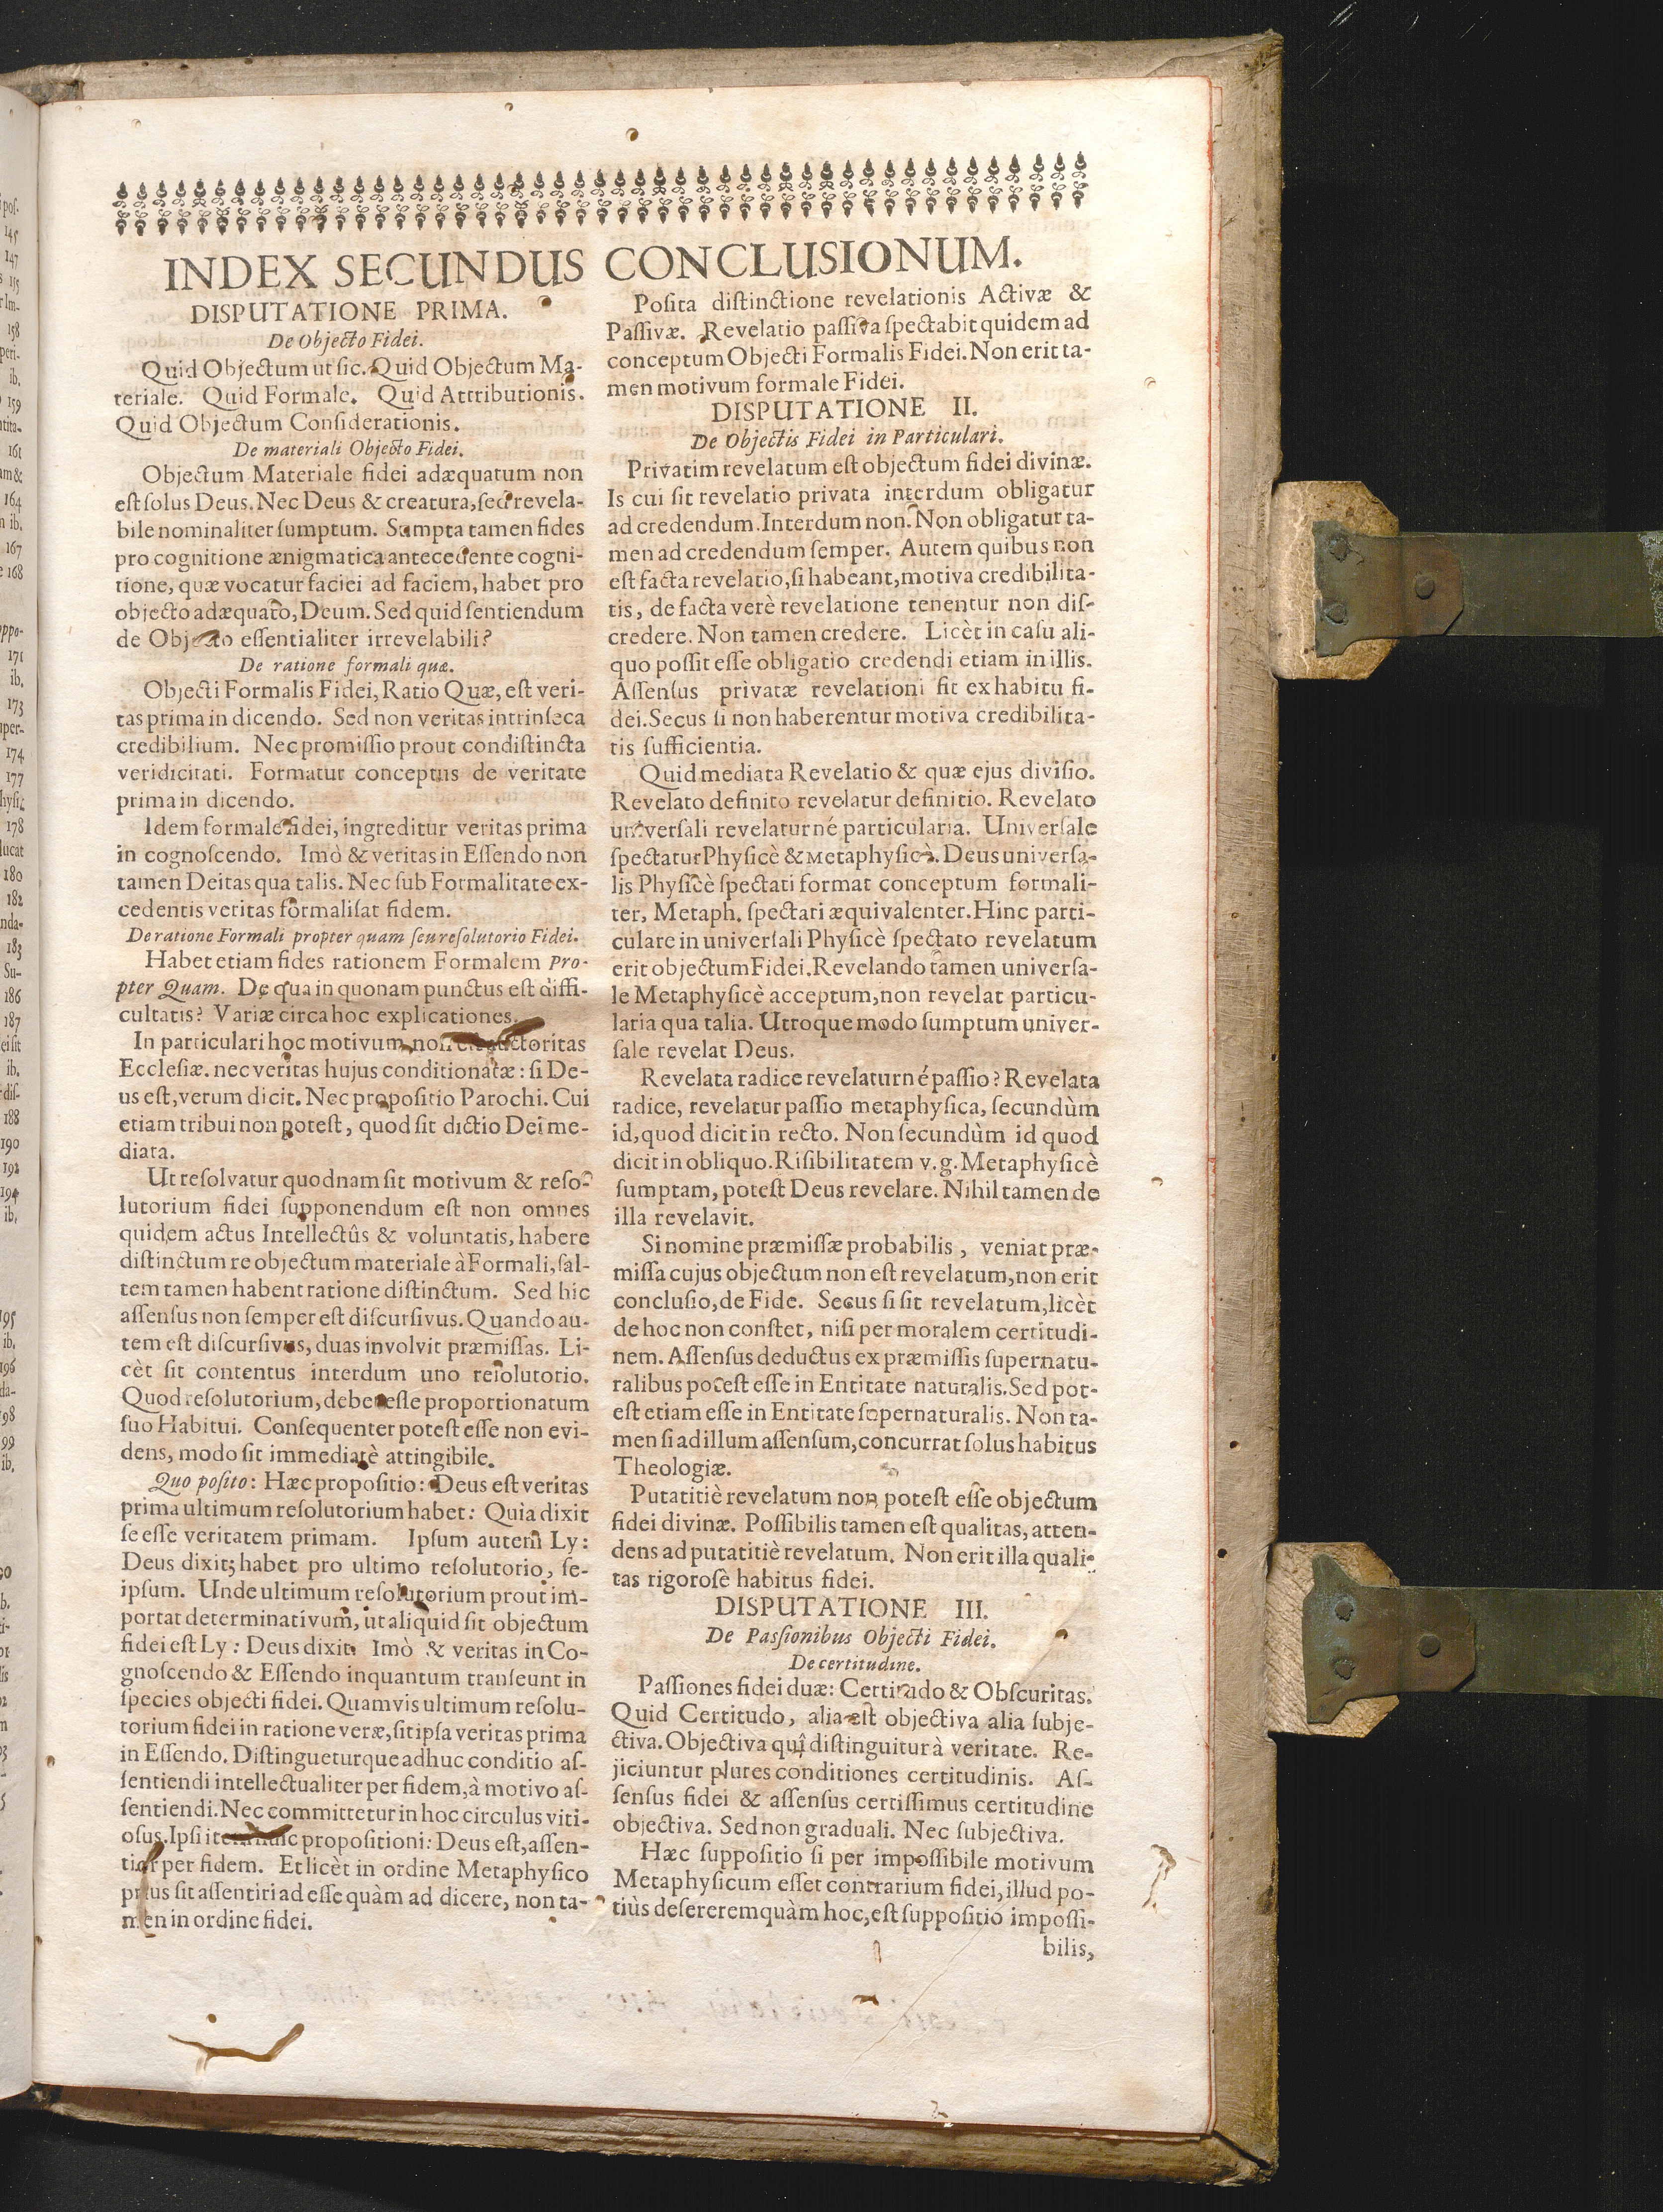 INDEX SECUNDUS CONCLUSIONUM.
DISPUTATIONE PRIMA.
De Objecto Fidei.
Quid Objectum ut sic. Quid Objectum Ma-
teriale. Quid Formale. Quid Attributionis.
Quid Objectum Considerationis.
De materiali Objecto Fidei.
Objectum Materiale fidei adæquatum non
est solus Deus. Nec Deus & creatura, sed revela-
bile nominaliter sumptum. Sumpta tamen fides
pro cognitione ænigmatica antecedente cogni-
tione, quæ vocatur faciei ad faciem, habet pro
objecto adæquato, Deum. Sed quid sentiendum
de Objecto essentialiter irrevelabili?
De ratione formali quæ.
Objecti Formalis Fidei, Ratio Quæ, est veri-
tas prima in dicendo. Sed non veritas intrinseca
credibilium. Nec promissio prout condistincta
veridicitati. Formatur conceptus de veritate
prima in dicendo.
Idem formale fidei, ingreditur veritas prima
in cognoscendo. Imò & veritas in Essendo non
tamen Deitas qua talis. Nec sub Formalitate ex-
cedentis veritas formalisat fidem.
De ratione Formali propter quam seu resolutorio Fidei.
Habet etiam fides rationem Formalem Pro-
pter Quam. De qua in quonam punctus est diffi-
cultatis? Variæ circa hoc explicationes.
In particulari hoc motivum, non auctoritas
Ecclesiæ. nec veritas hujus conditionatæ: si De-
us est, verum dicit. Nec propositio Parochi. Cui
etiam tribui non potest, quod sit dictio Dei me-
diata.
Ut resolvatur quodnam sit motivum & reso-
lutorium fidei supponendum est non omnes
quidem actus Intellectûs & voluntatis, habere
distinctum re objectum materiale à Formali, sal-
tem tamen habent ratione distinctum. Sed hic
assensus non semper est discursivus. Quando au-
tem est discursivus, duas involvit præmissas. Li-
cèt sit contentus interdum uno resolutorio.
Quod resolutorium, debet esse proportionatum
suo Habitui. Consequenter potest esse non evi-
dens, modo sit immediatè attingibile.
Quo posito: Hæc propositio: Deus est veritas
prima ultimum resolutorium habet: Quia dixit
se esse veritatem primam. Ipsum autem Ly:
Deus dixit; habet pro ultimo resolutorio, se-
ipsum. Unde ultimum resolutorium prout im-
portat determinativum, ut aliquid sit objectum
fidei est Ly: Deus dixit. Imò & veritas in Co-
gnoscendo & Essendo inquantum transeunt in
species objecti fidei. Quamvis ultimum resolu-
torium fidei in ratione veræ, sit ipsa veritas prima
in Essendo. Distingueturque adhuc conditio as-
sentiendi intellectualiter per fidem, à motivo as-
sentiendi. Nec committetur in hoc circulus viti-
osus. Ipsi propositioni: Deus est, assen-
tior per fidem. Et licèt in ordine Metaphysico
prius sit assentiri ad esse quàm ad dicere, non ta-
men in ordine fidei.
Posita distinctione revelationis Activæ &
Passivæ. Revelatio passiva spectabit quidem ad
conceptum Objecti Formalis Fidei. Non erit ta-
men motivum formale Fidei.
DISPUTATIONE II.
De Objectis Fidei in Particulari.
Privatim revelatum est objectum fidei divinæ.
Is cui fit revelatio privata interdum obligatur
ad credendum. Interdum non. Non obligatur ta-
men ad credendum semper. Autem quibus non
est facta revelatio, si habeant, motiva credibilita-
tis, de facta verè revelatione tenentur non dis-
credere. Non tamen credere. Licèt in casu ali-
quo possit esse obligatio credendi etiam in illis.
Assensus privatæ revelationi fit ex habitu fi-
dei. Secus si non haberentur motiva credibilita-
tis sufficientia.
Quid mediata Revelatio & quæ ejus divisio.
Revelato definito revelatur definitio. Revelato
universali revelaturné particularia. Universale
spectatur Physicè & Metaphysicè. Deus universa-
lis Physicè spectati format conceptum formali-
ter, Metaph. spectati æquivalenter. Hinc parti-
culare in universali Physicè spectato revelatum
erit objectum Fidei. Revelando tamen universa-
le Metaphysicè acceptum, non revelat particu-
laria qua talia. Utroque modo sumptum univer-
sale revelat Deus.
Revelata radice revelaturné passio? Revelata
radice, revelatur passio metaphysica, secundùm
id, quod dicit in recto. Non secundùm id quod
dicit in obliquo. Risibilitatem v. g. Metaphysicè
sumptam, potest Deus revelare. Nihil tamen de
illa revelavit.
Si nomine præmissæ probabilis, veniat præ-
missa cujus objectum non est revelatum, non erit
conclusio, de Fide. Secus si sit revelatum, licèt
de hoc non constet, nisi per moralem certitudi-
nem. Assensus deductus ex præmissis supernatu-
ralibus potest esse in Entitate naturalis. Sed pot-
est etiam esse in Entitate supernaturalis. Non ta-
men si ad illum assensum, concurrat solus habitus
Theologiæ.
Putatitiè revelatum non potest esse objectum
fidei divinæ. Possibilis tamen est qualitas, atten-
dens ad putatitiè revelatum. Non erit illa quali-
tas rigorosè habitus fidei.
DISPUTATIONE III.
De Passionibus Objecti Fidei.
De certitudine.
Passiones fidei duæ: Certitudo & Obscuritas.
Quid Certitudo, alia est objectiva alia subje-
ctiva. Objectiva quî distinguitur à veritate. Re-
jiciuntur plures conditiones certitudinis. As-
sensus fidei & assensus certissimus certitudine
objectiva. Sed non graduali. Nec subjectiva.
Hæc suppositio si per impossibile motivum
Metaphysicum esset contrarium fidei, illud po-
tiùs desererem quàm hoc, est suppositio impossi-
bilis,